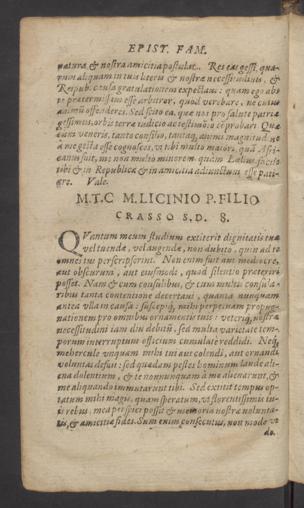 EPIST. FAM.
natura & nostra amicitia postulat. Res eas gessi, qua-
rum aliquam in tuis literis & nostræ necessitudinis, &
Reipub. causa gratulationem expectavi: quam ego abs
te prætermissam esse arbitror, quod vererere, ne cuius
animū offenderes. Sed scito ea, quæ nos pro salute patriæ
gessimus, orbis terræ iudicio ac testimonio cōprobari. Quæ
cum veneris, tanto consilio, tantaq; animi magnitudine
a me gesta esse cognosces, vt tibi multo maiori, quā Afri-
canus fuit, me non multo minorem quàm Lælium, facilè
tibi & in Republica & in amicitia adiunctum esse patia-
re. Vale.
M.T.C M.LICINIO P.FILIO
CRASSO S.D. 8.
QVantum meum studium extiterit dignitatis tuæ
vel tuendæ, vel augendæ, non dubito, quin ad te
omnes tui perscripserint. Non enim fuit aut mediocre,
aut obscurum, aut eiusmodi, quod silentio præteriri
posset. Nam & cum consulibus, & cum multis consula-
ribus tanta contentione decertavi, quanta nunquam
antea vlla in causa: suscepiq; mihi perpetuam propug-
nationem pro omnibus ornamentis tuis: veteriq; nostræ
necessitudini iam diu debitū, sed multa varietate tem-
porum interruptum officium cumulatè reddidi. Neq;
mehercule vnquam mihi tui aut colendi, aut ornandi
voluntas defuit: sed quædam pestes hominum laude ali-
ena dolentium, & te nonnunquam à me alienarunt, &
me aliquando immutarunt tibi. Sed extitit tempus op-
tatum mihi magis, quam speratum, vt florentissimis tu-
is rebus, mea perspici posset & memoria nostræ volunta-
tis, & amicitiæ fides. Sum enim consecutus, non modo vt
do.